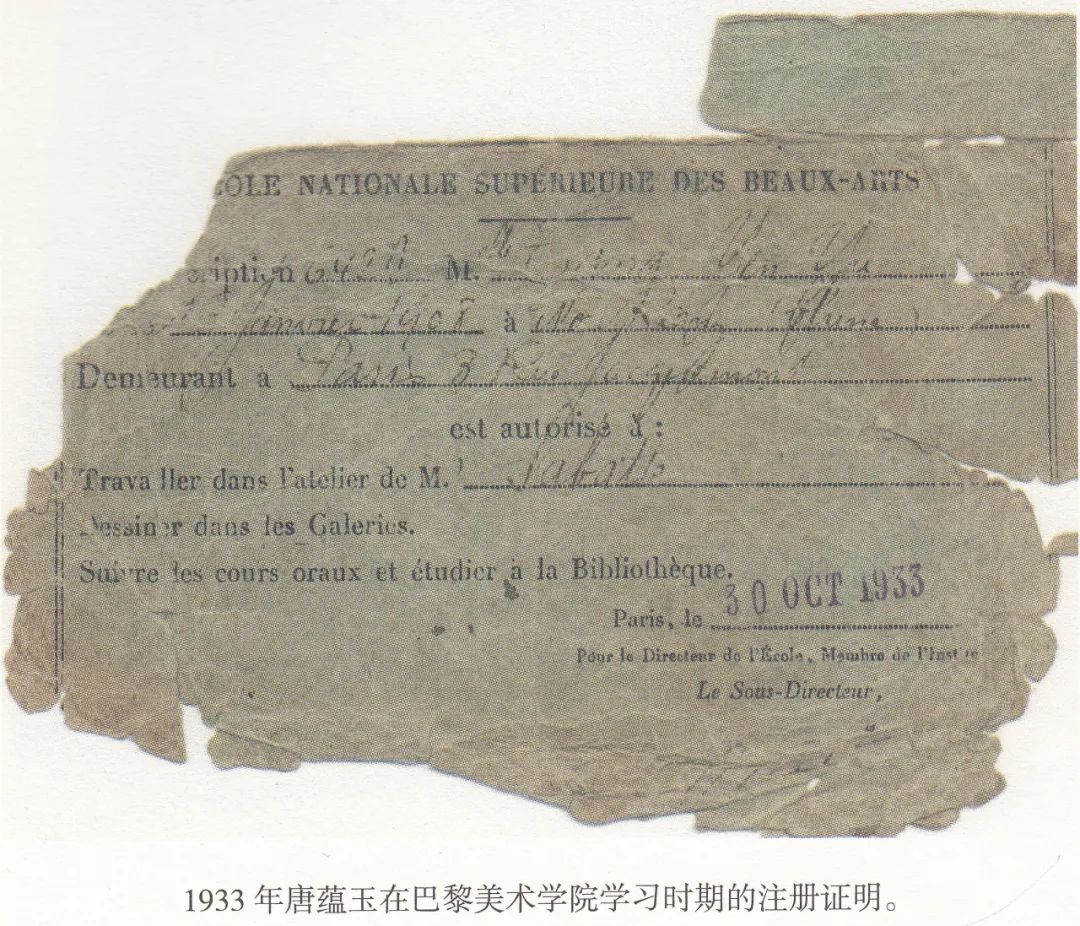 OLE NATIONALE SUPÉRIEURE DES BEAUX-ARTS
cription M.
Janvier 1908 à
Demeurant à Paris 3 Rue Jacquemont
est autorisé à :
Travailler dans l'atelier de M. Sabatté
Dessiner dans les Galeries.
Suivre les cours oraux et étudier à la Bibliothèque.
Paris, le 30 OCT 1933
Pour le Directeur de l'École, Membre de l'Inst
Le Sous-Directeur,
1933 年唐蕴玉在巴黎美术学院学习时期的注册证明。